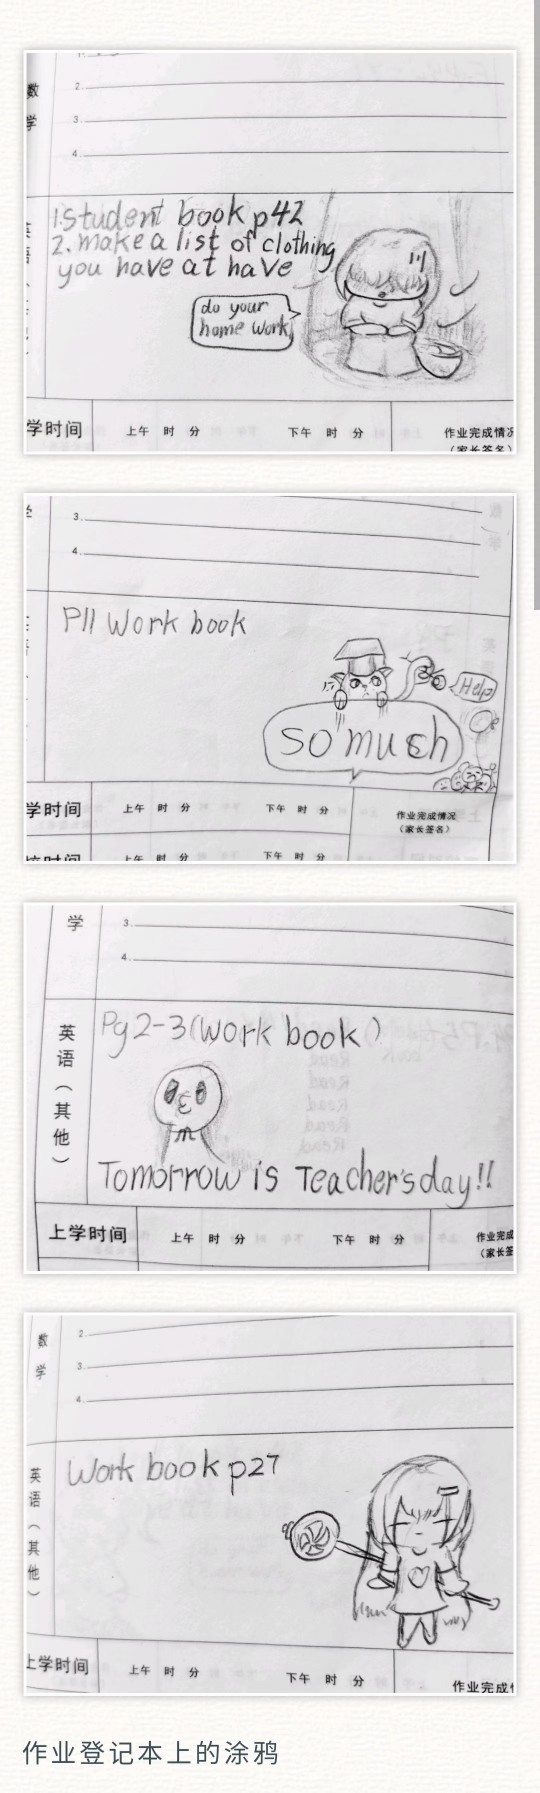 数
学
2.
3.
4.
1.Student book p42
2. make a list of clothing
you have at have
do your
home work
英
语
学时间
上午 时 分
下午 时 分
作业完成情况
（家长签名）
学
3.
4.
P11 Work book
Help
so much
学时间
上午 时 分
下午 时 分
作业完成情况
（家长签名）
上午 时 分
下午 时 分
学
3.
4.
英语（其他）
Pg2-3(work book)
Read
Read
Read
Read
Tomorrow is Teacher's day!!
上学时间
上午 时 分
下午 时 分
作业完成
（家长签
数
学
2.
3.
4.
英语（其他）
Work book p27
上学时间
上午 时 分
下午 时 分
作业完成
作业登记本上的涂鸦